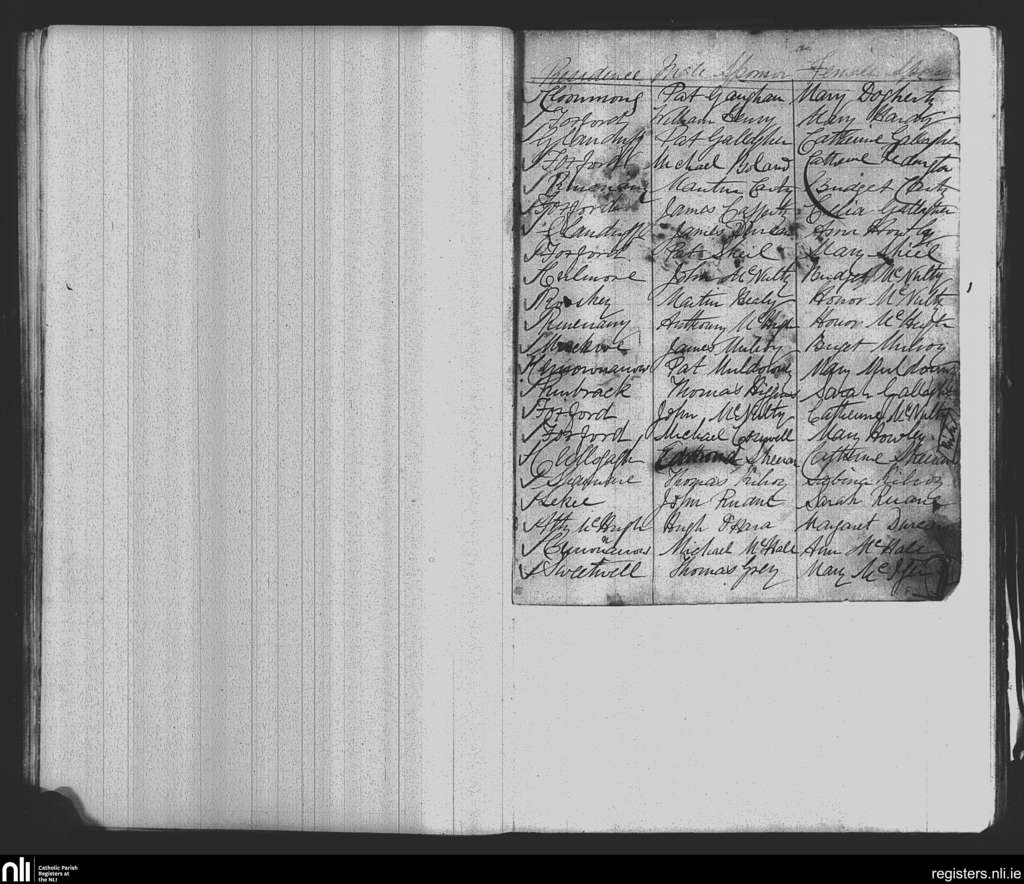 Residence Male Sponsor Female Spon
Cloonmong Pat Gaughan Mary Dogherty
Foxford William Henry Mary Hardy
Glanduff Pat Gallagher Catherine Gallagher
Foxford Michael Boland Catherine Redington
Martin Carty Bridget Carty
Foxford James Griffith Celia Gallagher
Glanduff James Duncan Ann Howley
Foxford Pat Sheil Mary Shiel
Culmore John McNulty Bridget McNulty
Rooskey Martin Healy Honor McNulty
Rinenany Anthony McHugh Honor McHugh
James Mulroy Briget Mulroy
Pat Muldowny Mary Muldowny
Shinbrack Thomas Higgins Sarah Gallagher
Foxford John McNulty Catherine McNulty
Foxford Michael Conwell Mary Howley
Edmond Sheeran Catherine Sheeran
Shanmore Thomas Kilroy Sabina Kilroy
Leckee John Ruane Sarah Ruane
Atty McHugh Hugh O'Hara Margaret Duncan
Michael McHale Ann McHale
Sweetwell Thomas Grey Mary
nli
Catholic Parish
Registers at
the NLI
registers.nli.ie